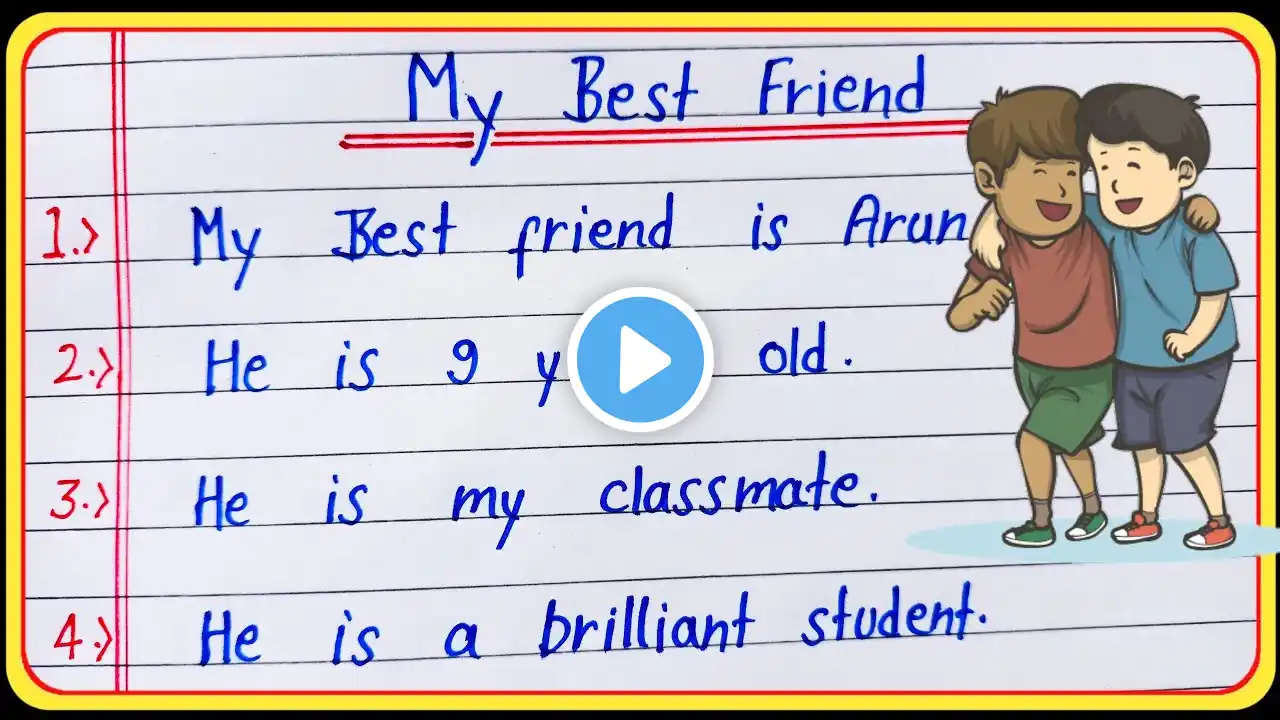 My Best Friend
1.) My Best friend is Arun
2.) He is 9 y old.
3.) He is my classmate.
4.) He is a brilliant student.